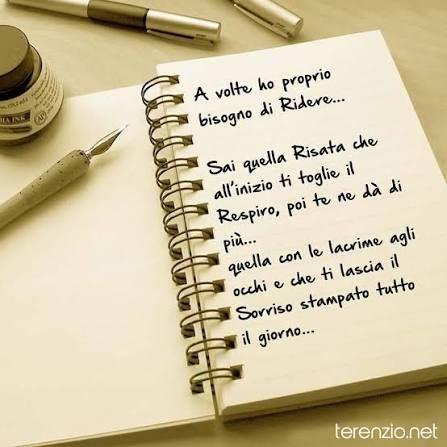 A volte ho proprio
bisogno di Ridere...
Sai quella Risata che
all'inizio ti toglie il
Respiro, poi te ne dà di
più...
quella con le lacrime agli
occhi e che ti lascia il
Sorriso stampato tutto
il giorno...
terenzio.net